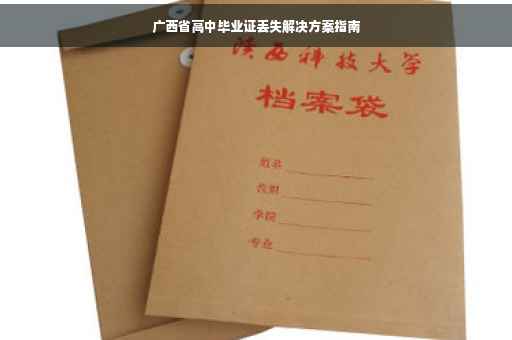 广西省高中毕业证丢失解决方案指南
陕西科技大学
档案袋
姓名
学院
专业